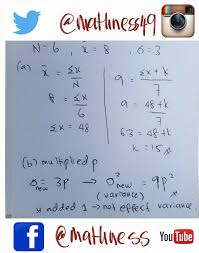 @mathness49
N=6 , x̄ = 8 , σ=3
(a) x̄ = Σx/N
8 = Σx/6
Σx = 48
9 = Σx+k/7
9 = 48+k/7
63 = 48+k
k = 15
(b) multiplied p
σnew = 3p → σ²new = 9p²
(variance)
* added 1 → not effect variance
@mathness YouTube